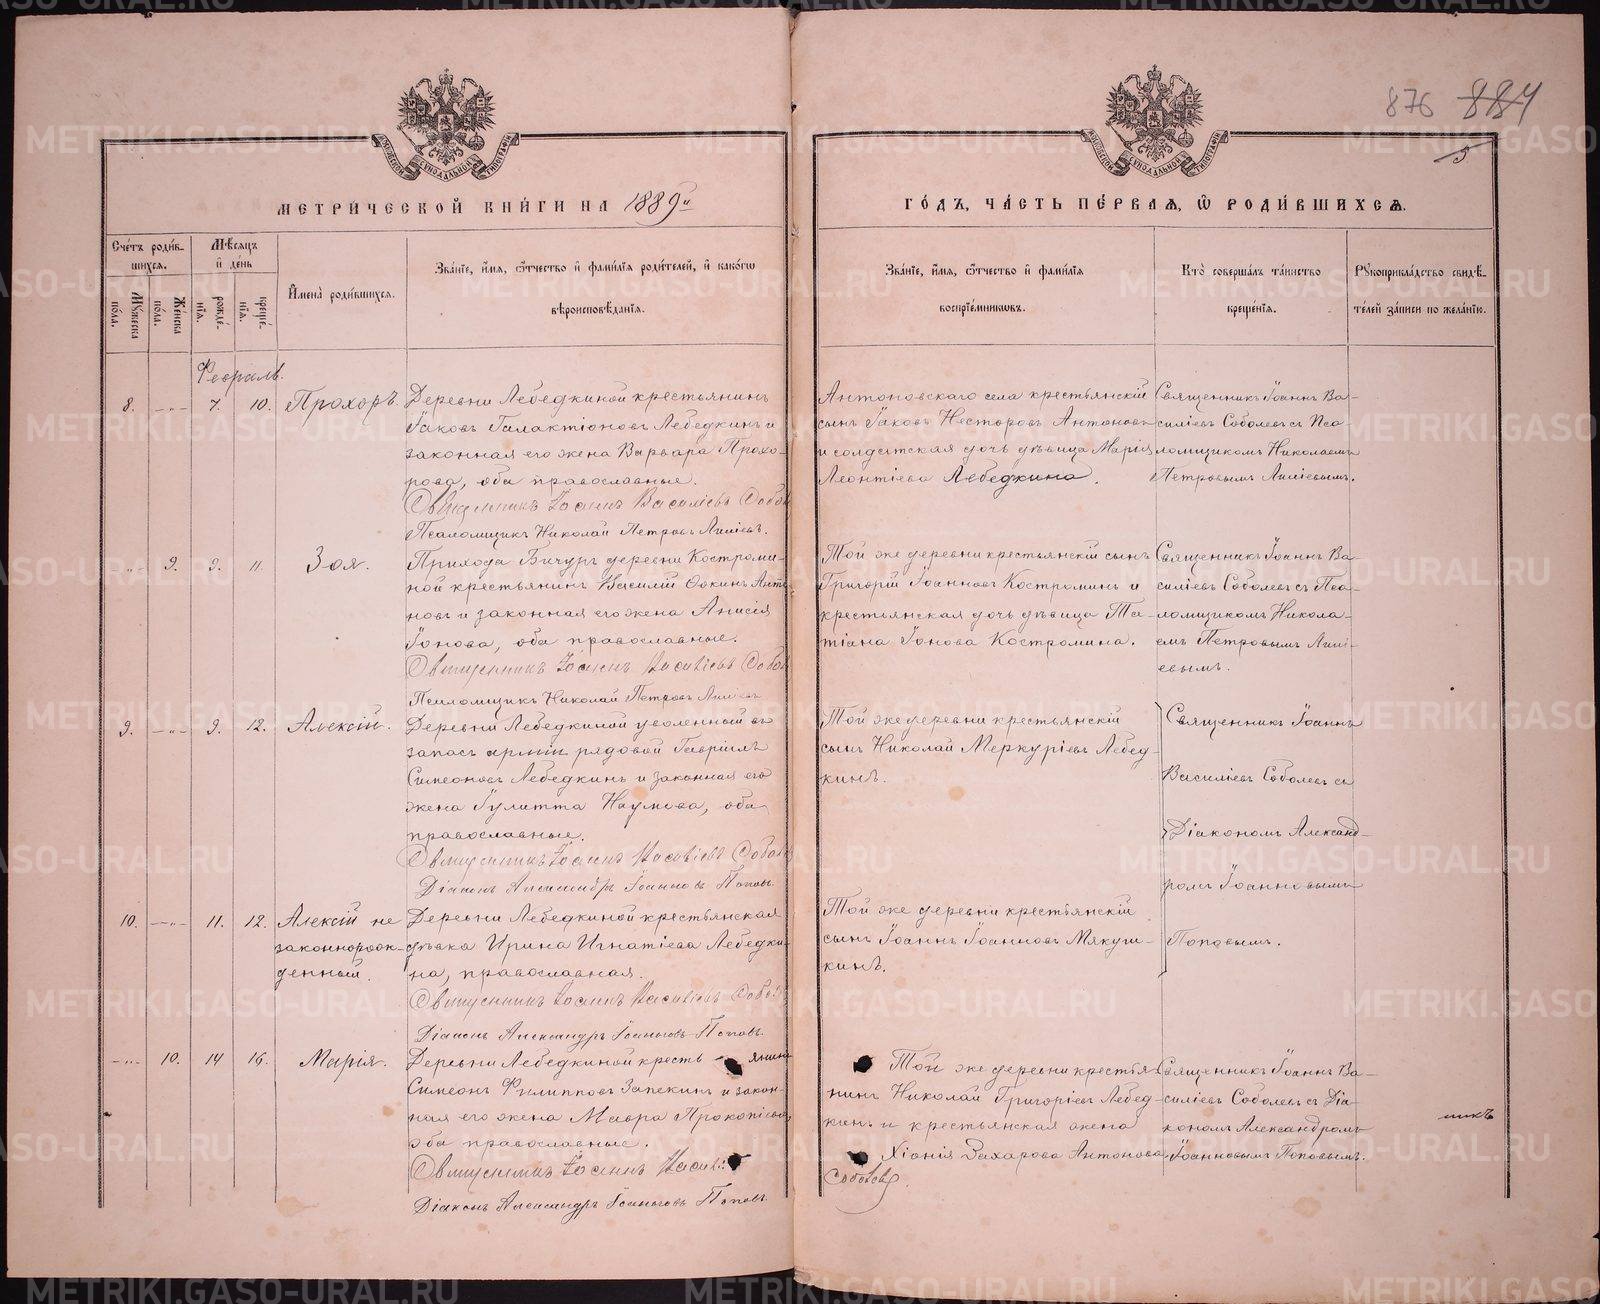 876 884
5
МЕТРИ́ЧЕСКОЙ КНИ́ГИ НА 1889й
ГО́ДЪ, ЧА́СТЬ ПЕ́РВАѦ, Ѽ РОДИ́ВШИХСѦ.
Сче́тъ роди́в-
шихсѧ.
Мꙋ́жеска по́ла.
Же́нска по́ла.
Мѣ́сѧцъ
и҆ де́нь
рожде́-
нїѧ.
креще́-
нїѧ.
И҆мена̀ роди́вшихсѧ.
Зва́нїе, и҆́мѧ, ѻ҆́тчество и҆ фами́лїѧ роди́телей, и҆ како́гѡ
вѣроисповѣ́данїѧ.
Зва́нїе, и҆́мѧ, ѻ҆́тчество и҆ фами́лїѧ
воспрїе́мникѡвъ.
Кто̀ соверша́лъ та́инство
креще́нїѧ.
Рꙋкоприкла́дство свидѣ́-
телей за́писи по жела́нїю.
Февраль.
8. —„— 7. 10. Прохоръ.
Деревни Лебедкиной крестьянинъ
Іаковъ Галактіоновъ Лебедкинъ и
законная его жена Варвара Прохо-
рова, оба православные.
Священникъ Іоаннъ Василіевъ Собол
Псаломщикъ Николай Петровъ Лиліевъ.
Антоновскаго села крестьянскій
сынъ Іаковъ Несторовъ Антоновъ
и солдатская дочь дѣвица Марія
Леонтіева Лебедкина.
Священникъ Іоаннъ Ва-
силіевъ Соболевъ съ Пса-
ломщикомъ Николаемъ
Петровымъ Лиліевымъ.
—„— 9. 9. 11. Зоя.
Прихода Бичуръ деревни Костроми-
ной крестьянинъ Василій Ѳокинъ Анто
новъ и законная его жена Анисія
Іонова, оба православные.
Священникъ Іоаннъ Василіевъ Собол
Псаломщикъ Николай Петровъ Лиліевъ
Той же деревни крестьянскій сынъ
Григорій Іоанновъ Костроминъ и
крестьянская дочь дѣвица Та-
тіана Іонова Костромина.
Священникъ Іоаннъ Ва-
силіевъ Соболевъ съ Пса-
ломщикомъ Никола-
емъ Петровымъ Лилі-
евымъ.
9. —„— 9. 12. Алексій.
Деревни Лебедкиной уволенный въ
запасъ арміи рядовой Гавріилъ
Симеоновъ Лебедкинъ и законная его
жена Іулитта Наумова, оба
православные.
Священникъ Іоаннъ Василіевъ Собол
Діаконъ Александръ Іоанновъ Поповъ.
Той же деревни крестьянскій
сынъ Николай Меркуріевъ Лебед-
кинъ.
Священникъ Іоаннъ
Василіевъ Соболевъ съ
Діакономъ Александ-
ромъ Іоанновымъ
Поповымъ.
10. —„— 11. 12. Алексій не
законнорож-
денный.
Деревни Лебедкиной крестьянская
дѣвка Ирина Игнатіева Лебедки-
на, православная.
Священникъ Іоаннъ Василіевъ Собол
Діаконъ Александръ Іоанновъ Поповъ.
Той же деревни крестьянскій
сынъ Іоаннъ Іоанновъ Мякуш-
кинъ.
—„— 10. 14 16. Марія.
Деревни Лебедкиной кресть- янинъ
Симеонъ Филипповъ Запекинъ и закон-
ная его жена Мавра Прокопіева,
оба православные.
Священникъ Іоаннъ Васил
Діаконъ Александръ Іоанновъ Поповъ.
Той же деревни крестья-
нинъ Николай Григоріевъ Лебед-
кинъ и крестьянская жена
Хіонія Захарова Антонова
Соболевъ.
Священникъ Іоаннъ Ва-
силіевъ Соболевъ съ Діа-
кономъ Александромъ
Іоанновымъ Поповымъ.
никъ
METRIKI.GASO-URAL.RU